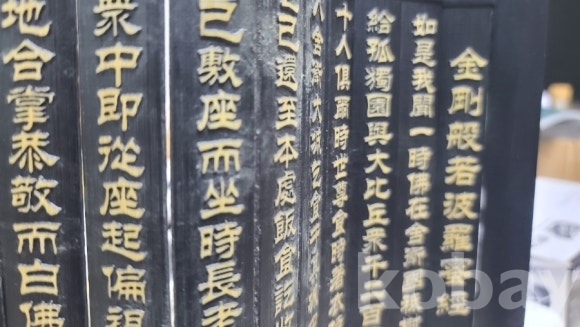 金剛般若波羅蜜經
如是我聞一時佛在舍衛國
給孤獨園與大比丘眾千二百
十人俱爾時世尊食時著衣
入舍衛大城乞食
已還至本處飯食訖收
已敷座而坐時長老
眾中即從座起偏袒
地合掌恭敬而白佛
kobay